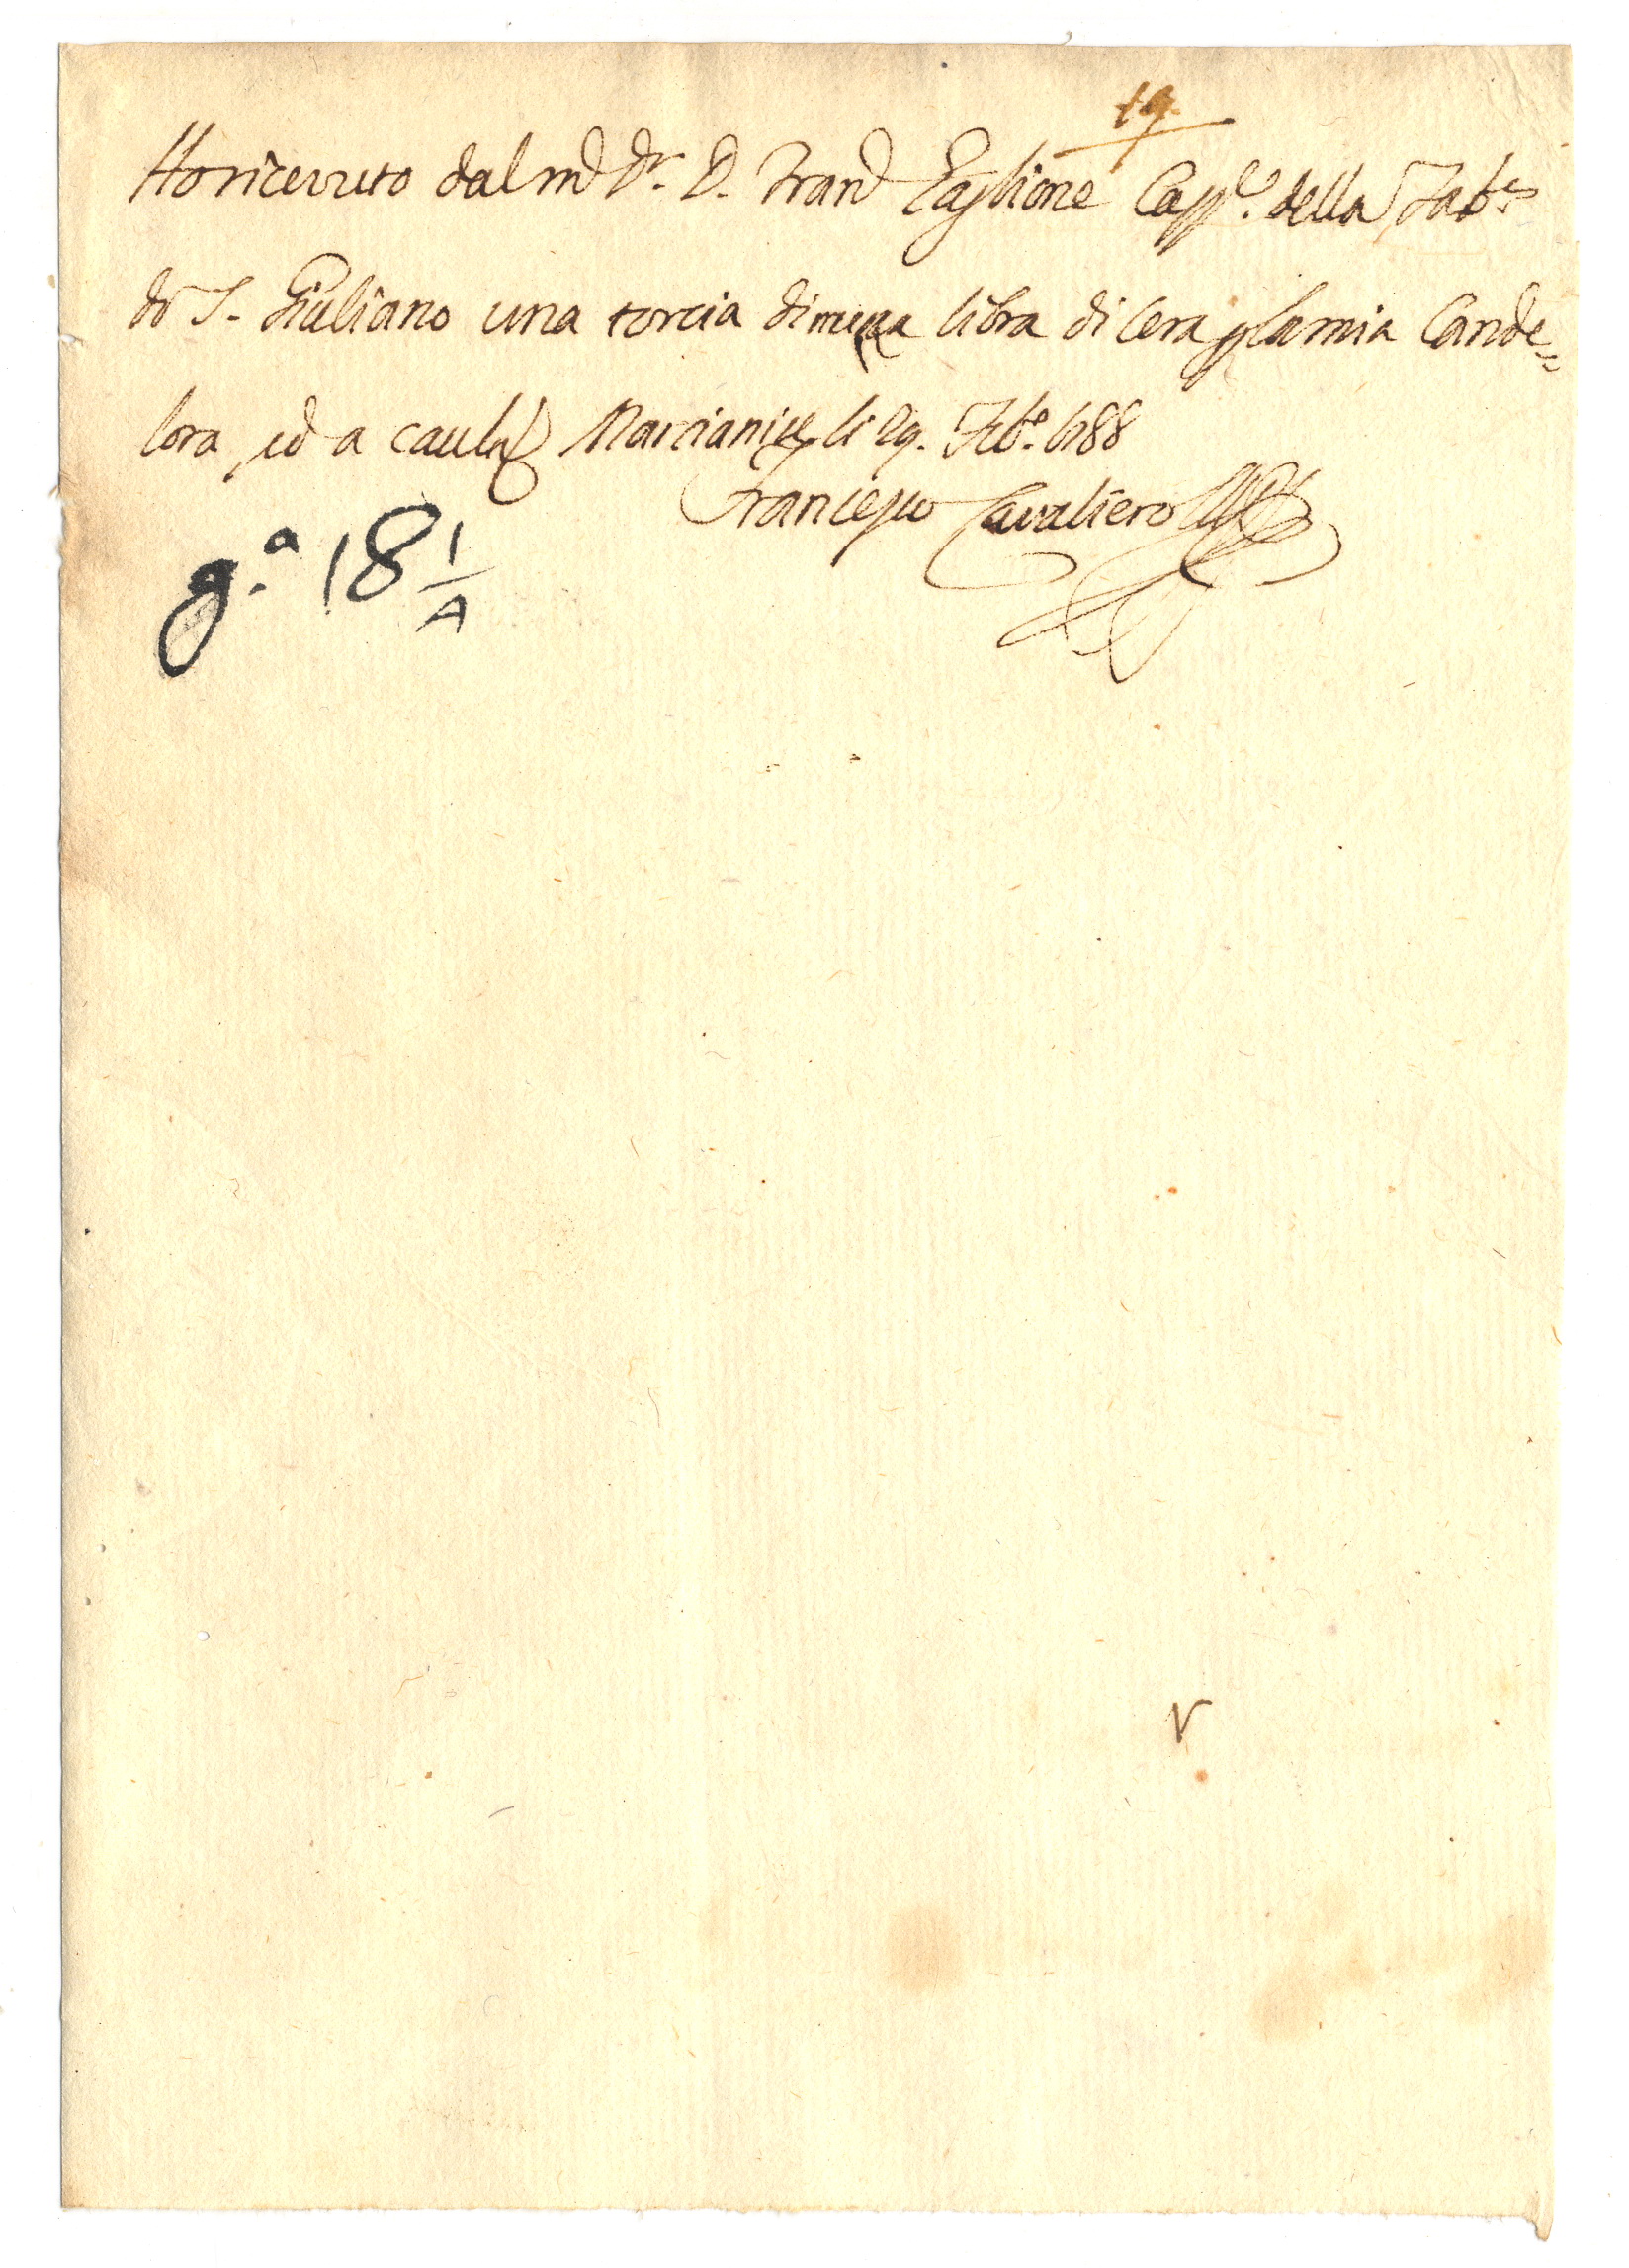 19.
Ho ricevuto dal md Dr. D. Frand Taglione Capp.e della
di S. Giuliano una torcia di meza libra di Cera p la mia Cande=
lora, ed a caut. Marcianise li 29. Feb.o 1688
Francesco Cavaliero
g.a 18 1/A